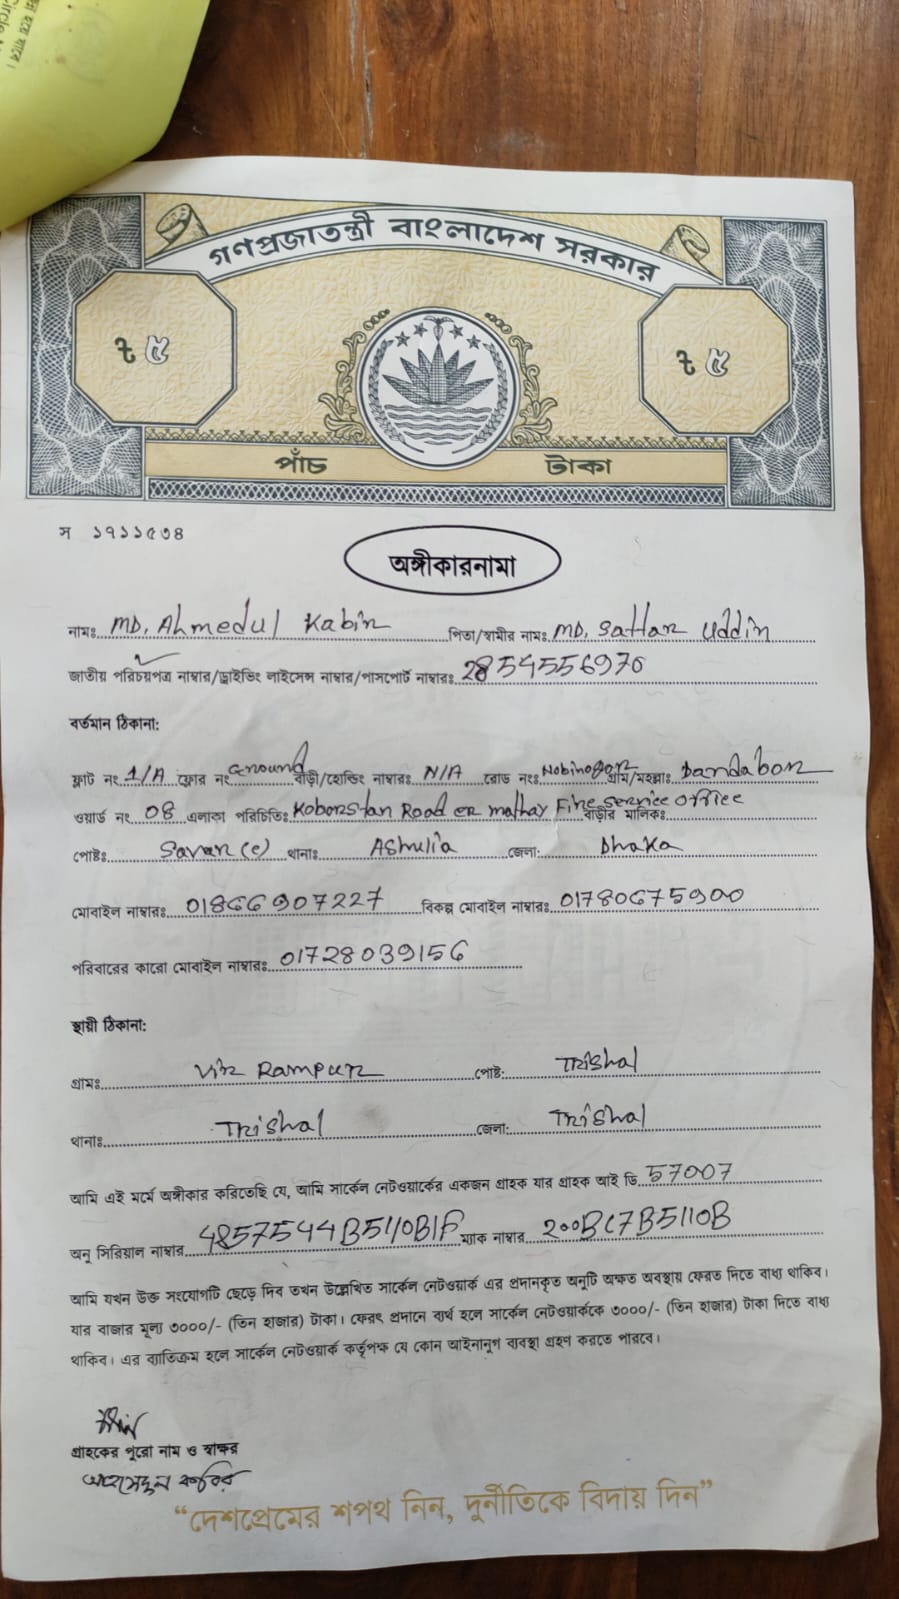 গণপ্রজাতন্ত্রী বাংলাদেশ সরকার
৳ ৫ ৳ ৫
পাঁচ টাকা
স ১৭১১৫৩৪
অঙ্গীকারনামা
নামঃ MD. Ahmedul Kabir পিতা/স্বামীর নামঃ MD. Sattar Uddin
জাতীয় পরিচয়পত্র নাম্বার/ড্রাইভিং লাইসেন্স নাম্বার/পাসপোর্ট নাম্বারঃ 2854556970
বর্তমান ঠিকানা:
ফ্লাট নং 1/A ফ্লোর নং Ground বাড়ী/হোল্ডিং নাম্বারঃ N/A রোড নংঃ Nobinogor গ্রাম/মহল্লাঃ Dandabor
ওয়ার্ড নং 08 এলাকা পরিচিতিঃ Koborstan Road er mathay Fire service office বাড়ীর মালিকঃ
পোষ্টঃ Savar (c) থানাঃ Ashulia জেলা: Dhaka
মোবাইল নাম্বারঃ 01866907227 বিকল্প মোবাইল নাম্বারঃ 01780675900
পরিবারের কারো মোবাইল নাম্বারঃ 01728039156
স্থায়ী ঠিকানা:
গ্রামঃ Vir Rampur পোষ্ট: Trishal
থানাঃ Trishal জেলা: Trishal
আমি এই মর্মে অঙ্গীকার করিতেছি যে, আমি সার্কেল নেটওয়ার্কের একজন গ্রাহক যার গ্রাহক আই ডি 57007
অনু সিরিয়াল নাম্বার 4857544B5110B1F ম্যাক নাম্বার 200BC7B5110B
আমি যখন উক্ত সংযোগটি ছেড়ে দিব তখন উল্লেখিত সার্কেল নেটওয়ার্ক এর প্রদানকৃত অনুটি অক্ষত অবস্থায় ফেরত দিতে বাধ্য থাকিব।
যার বাজার মূল্য ৩০০০/- (তিন হাজার) টাকা। ফেরৎ প্রদানে ব্যর্থ হলে সার্কেল নেটওয়ার্ককে ৩০০০/- (তিন হাজার) টাকা দিতে বাধ্য
থাকিব। এর ব্যতিক্রম হলে সার্কেল নেটওয়ার্ক কর্তৃপক্ষ যে কোন আইনানুগ ব্যবস্থা গ্রহণ করতে পারবে।
গ্রাহকের পুরো নাম ও স্বাক্ষর
আহমেদুল কবির
“দেশপ্রেমের শপথ নিন, দুর্নীতিকে বিদায় দিন”